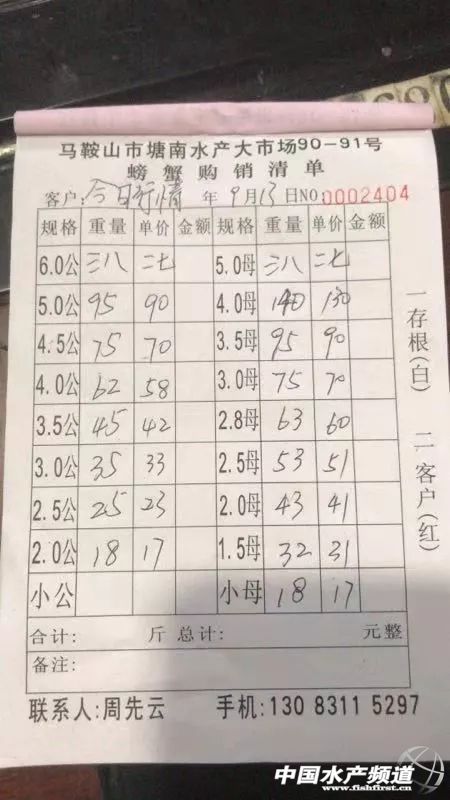 马鞍山市塘南水产大市场90-91号
螃蟹购销清单
客户:今日行情 年9月13日NO:0002404
规格 重量 单价 金额 规格 重量 单价 金额
6.0公 三八 二七 5.0母 三八 二七
5.0公 95 90 4.0母 140 130
4.5公 75 70 3.5母 95 90
4.0公 62 58 3.0母 75 70
3.5公 45 42 2.8母 63 60
3.0公 35 33 2.5母 53 51
2.5公 25 23 2.0母 43 41
2.0公 18 17 1.5母 32 31
小公 小母 18 17
合计: 斤 总计: 元整
备注:
联系人:周先云 手机:130 8311 5297
一存根(白) 二客户(红)
中国水产频道
www.fishfirst.cn